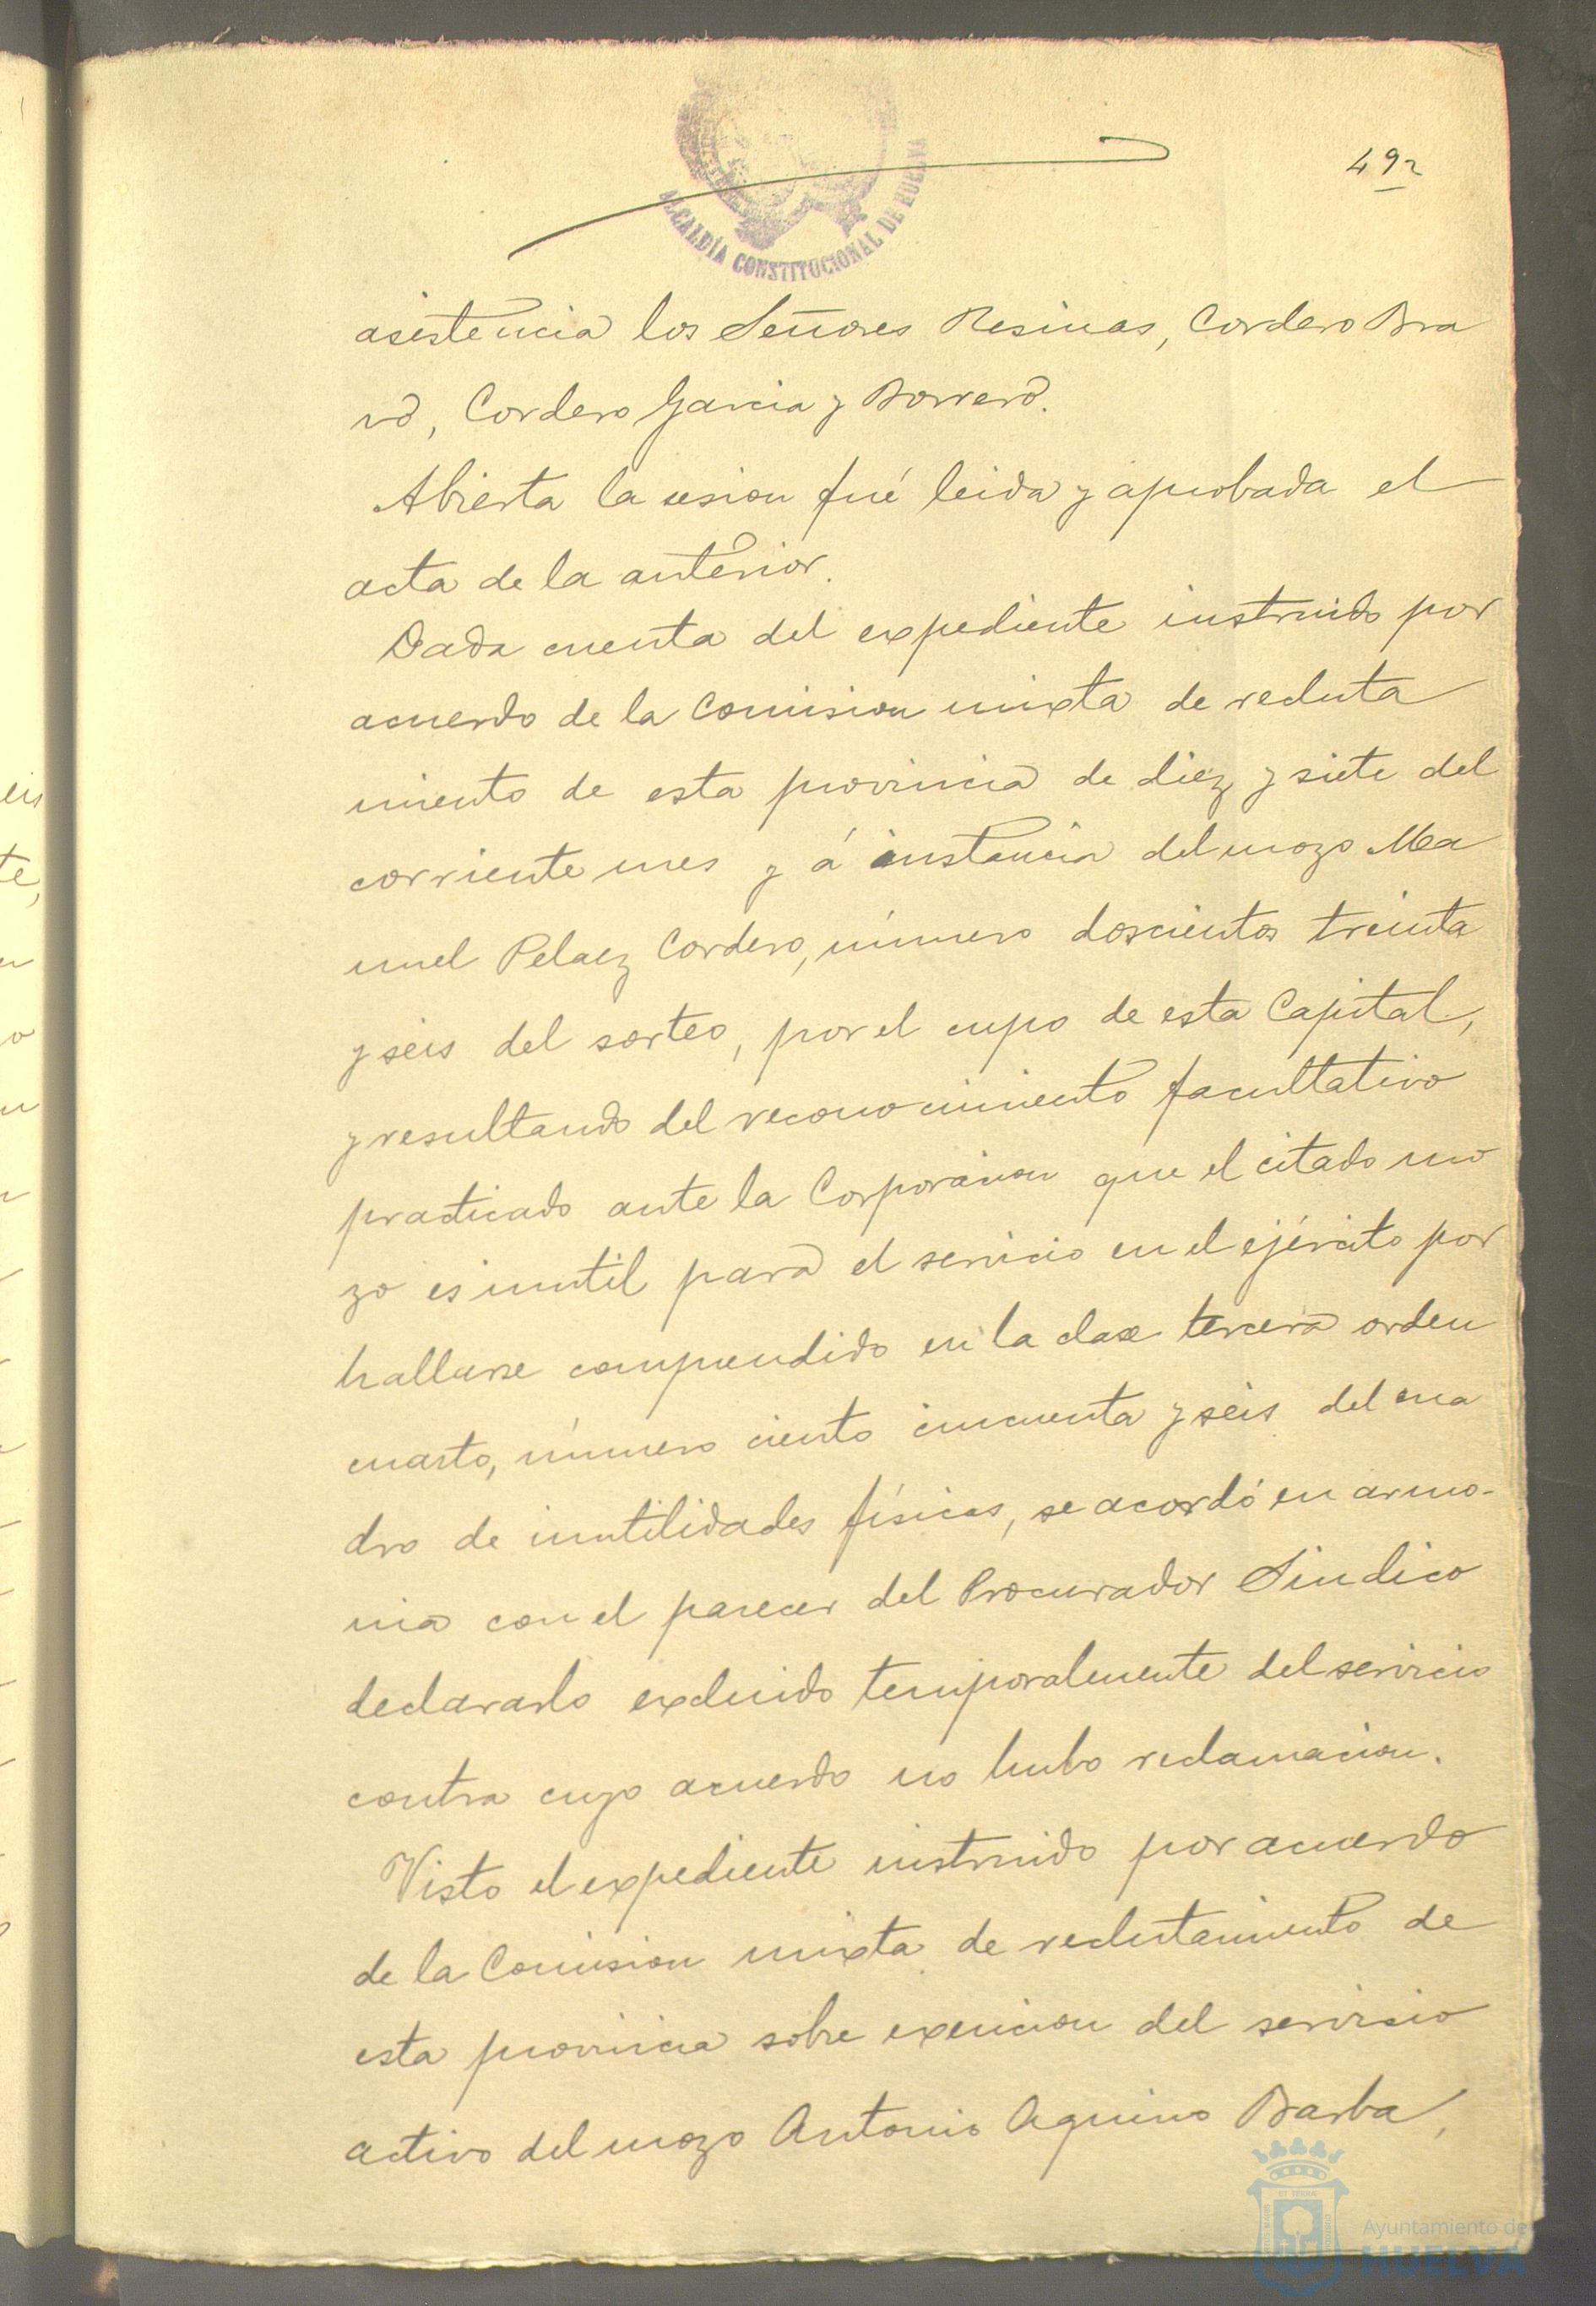 492
ALCALDÍA CONSTITUCIONAL DE HUELVA
asistencia los Señores Resinas, Cordero Bra
vo, Cordero Garcia y Borrero.
Abierta la sesion fué leida y aprobada el
acta de la anterior.
Dada cuenta del expediente instruido por
acuerdo de la Comision mixta de recluta
miento de esta provincia de diez y siete del
corriente mes y á instancia del mozo Ma
nuel Pelaez Cordero, número doscientos treinta
y seis del sorteo, por el cupo de esta Capital,
y resultando del reconocimiento facultativo
practicado ante la Corporacion que el citado mo
zo es inutil para el servicio en el ejército por
hallarse comprendido en la clase tercera orden
cuarto, número ciento cincuenta y seis del cua
dro de inutilidades físicas, se acordó en armo-
nia con el parecer del Procurador Sindico
declararlo excluido temporalmente del servicio
contra cuyo acuerdo no hubo reclamacion.
Visto el expediente instruido por acuerdo
de la Comision mixta de reclutamiento de
esta provincia sobre exencion del servicio
activo del mozo Antonio Aquino Barba,
Ayuntamiento de
HUELVA